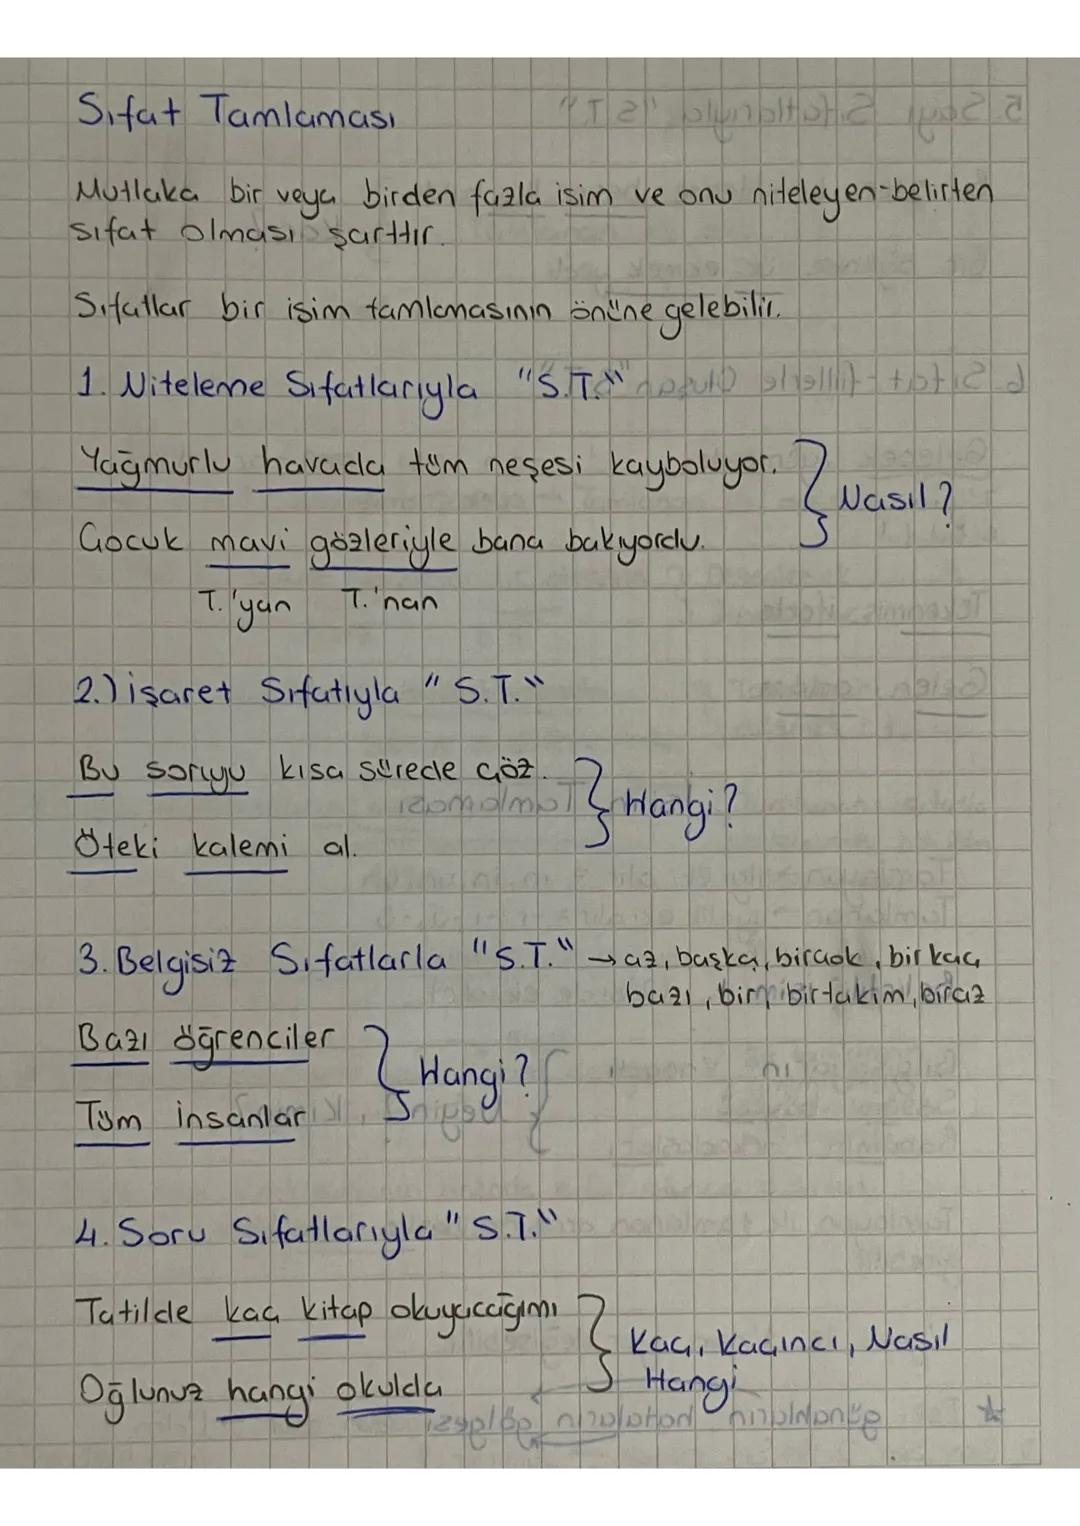 Sıfat Tamlaması
Mutlaka bir veya birden fazla isim ve onu niteleyen-belirten
sıfat olması şarttır.
Sıfatlar bir isim tamlamasının önüne gelebilir.
1. Niteleme Sıfatlarıyla "S.T."
Yağmurlu havada tüm neşesi kayboluyor.
Çocuk mavi gözleriyle bana bakıyordu.
} Nasıl?
T.'yan T.'nan
2.) işaret Sıfatıyla "S.T."
Bu soruyu kısa sürede çöz.
Öteki kalemi al.
} Hangi?
3. Belgisiz Sıfatlarla "S.T." → az, başka, birçok, birkaç
bazı, bir, birtakım, biraz
Bazı öğrenciler
Tüm insanlar
} Hangi?
4. Soru Sıfatlarıyla "S.T."
Tatilde kaç kitap okuyacağımı
Oğlunuz hangi okulda
} Kaç, Kaçıncı, Nasıl
Hangi